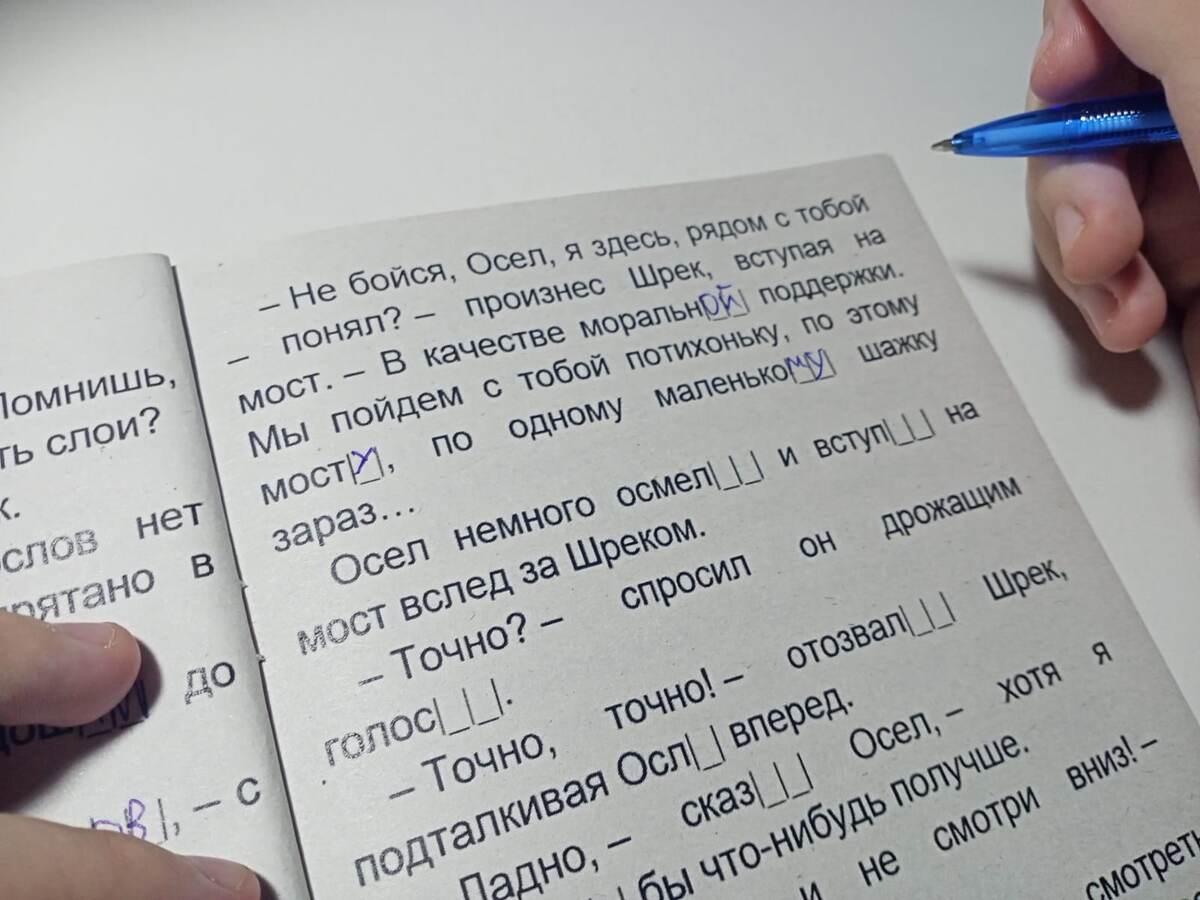 Помнишь,
ть слои?
к.
слов нет
рятано в
до
ов, – с
– Не бойся, Осел, я здесь, рядом с тобой
– понял? – произнес Шрек, вступая на
мост. – В качестве моральной поддержки.
Мы пойдем с тобой потихоньку, по этому
мосту, по одному маленькому шажку
зараз...
Осел немного осмел|_|_| и вступ|_|_| на
мост вслед за Шреком.
– Точно? – спросил он дрожащим
голос|_|_|.
– Точно, точно! – отозвал|_|_| Шрек,
подталкивая Осл|_| вперед.
Ладно, – сказ|_|_| Осел, – хотя я
бы что-нибудь получше.
и не смотри вниз! –
смотреть